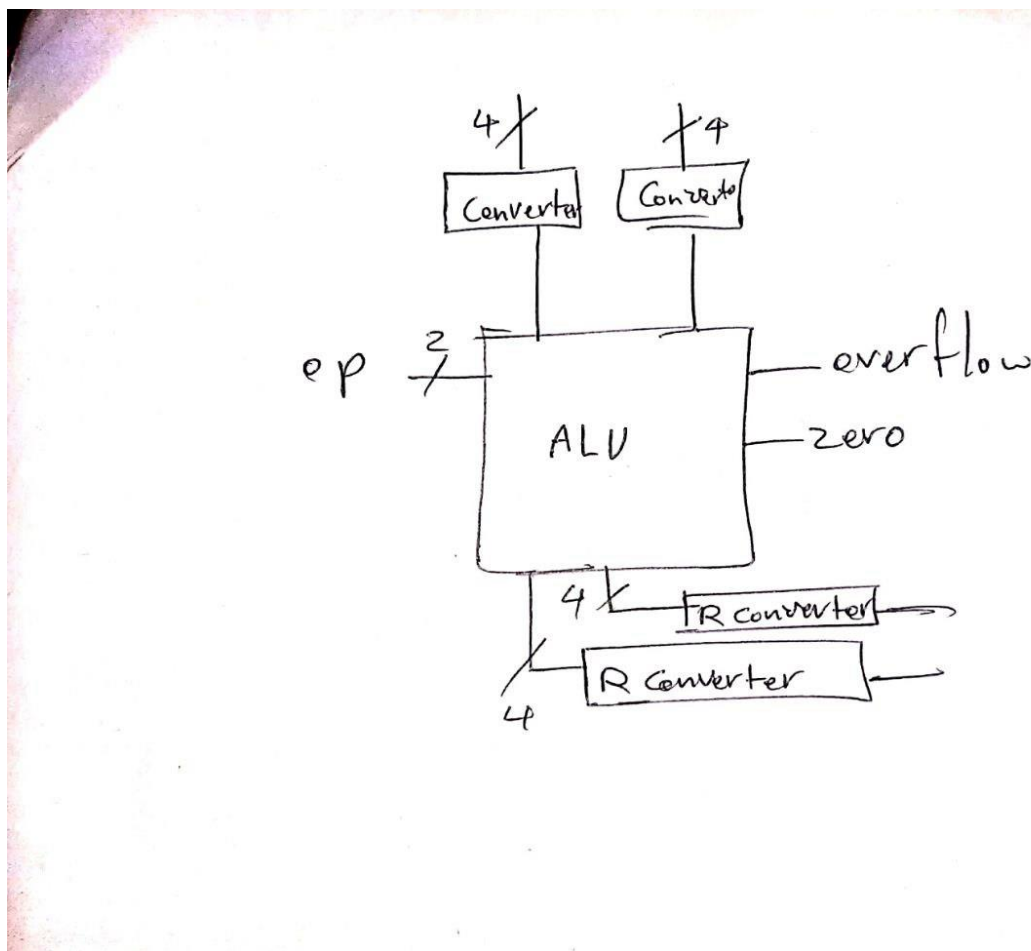 4 4
Converter Converter
2
op
overflow
ALU
zero
4
R Converter
R Converter
4